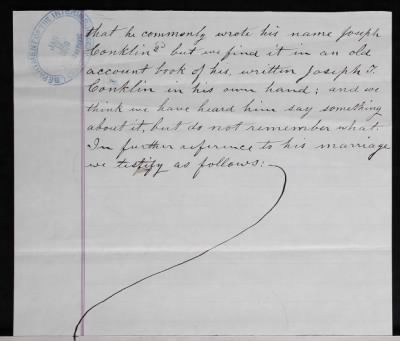 DEPARTMENT OF THE INTERIOR
that he commonly wrote his name Joseph
Conklin 2d but we find it in an old
account book of his, written Joseph T.
Conklin in his own hand; and we
think we have heard him say something
about it, but do not remember what.
In further reference to his marriage
we testify as follows:—